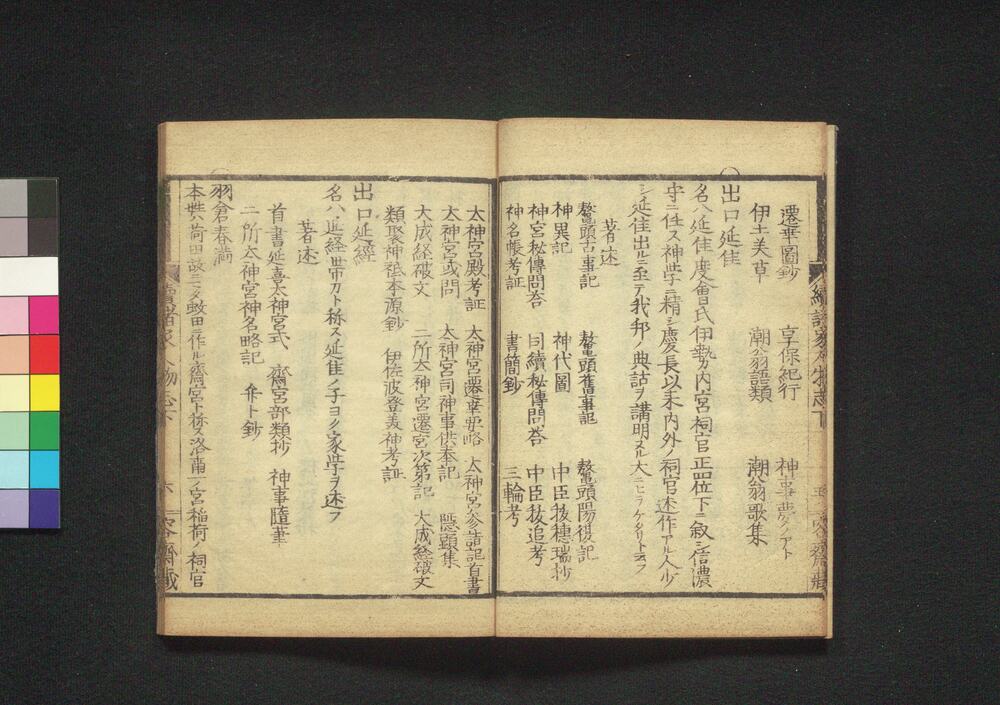 遷幸圖鈔　享保紀行　神事夢ノアト
伊土美草　潮翁語類　潮翁歌集
出口延佳
名ハ延佳度會氏伊勢ノ内宮祠官正四位下ニ叙シ信濃
守ニ任ス神学ニ精シ慶長以来内外ノ祠官述作アル人少
シ延佳出ルニ至テ我邦ノ典詁ヲ講明スル大ニヒラケタリト云フ
著述
鼇頭古事記　鼇頭舊事記　鼇頭陽復記
神異記　神代圖　中臣祓穗瑞抄
神宮秘傳問答　同續秘傳問答　中臣祓追考
神名帳考証　書簡鈔　三輪考
太神宮殿考証　太神宮遷幸要略　太神宮参詣記首書
太神宮或問　太神宮司神事供奉記　隠顕集
大成経破文　二所太神宮遷宮次第記　大成経破文
類聚神祇本源鈔　伊佐波登美神考証
出口延經
名ハ延経帯刀ト称ス延佳ノ子ヨク家学ヲ述フ
著述
首書延喜大神宮式　齋宮部類抄　神事随筆
二所太神宮神名略記　弁卜鈔
羽倉春満
本姓ハ荷田故ニ又蚊田ニ作ル齋宮ト称ス洛南一ノ宮稲荷ノ祠官